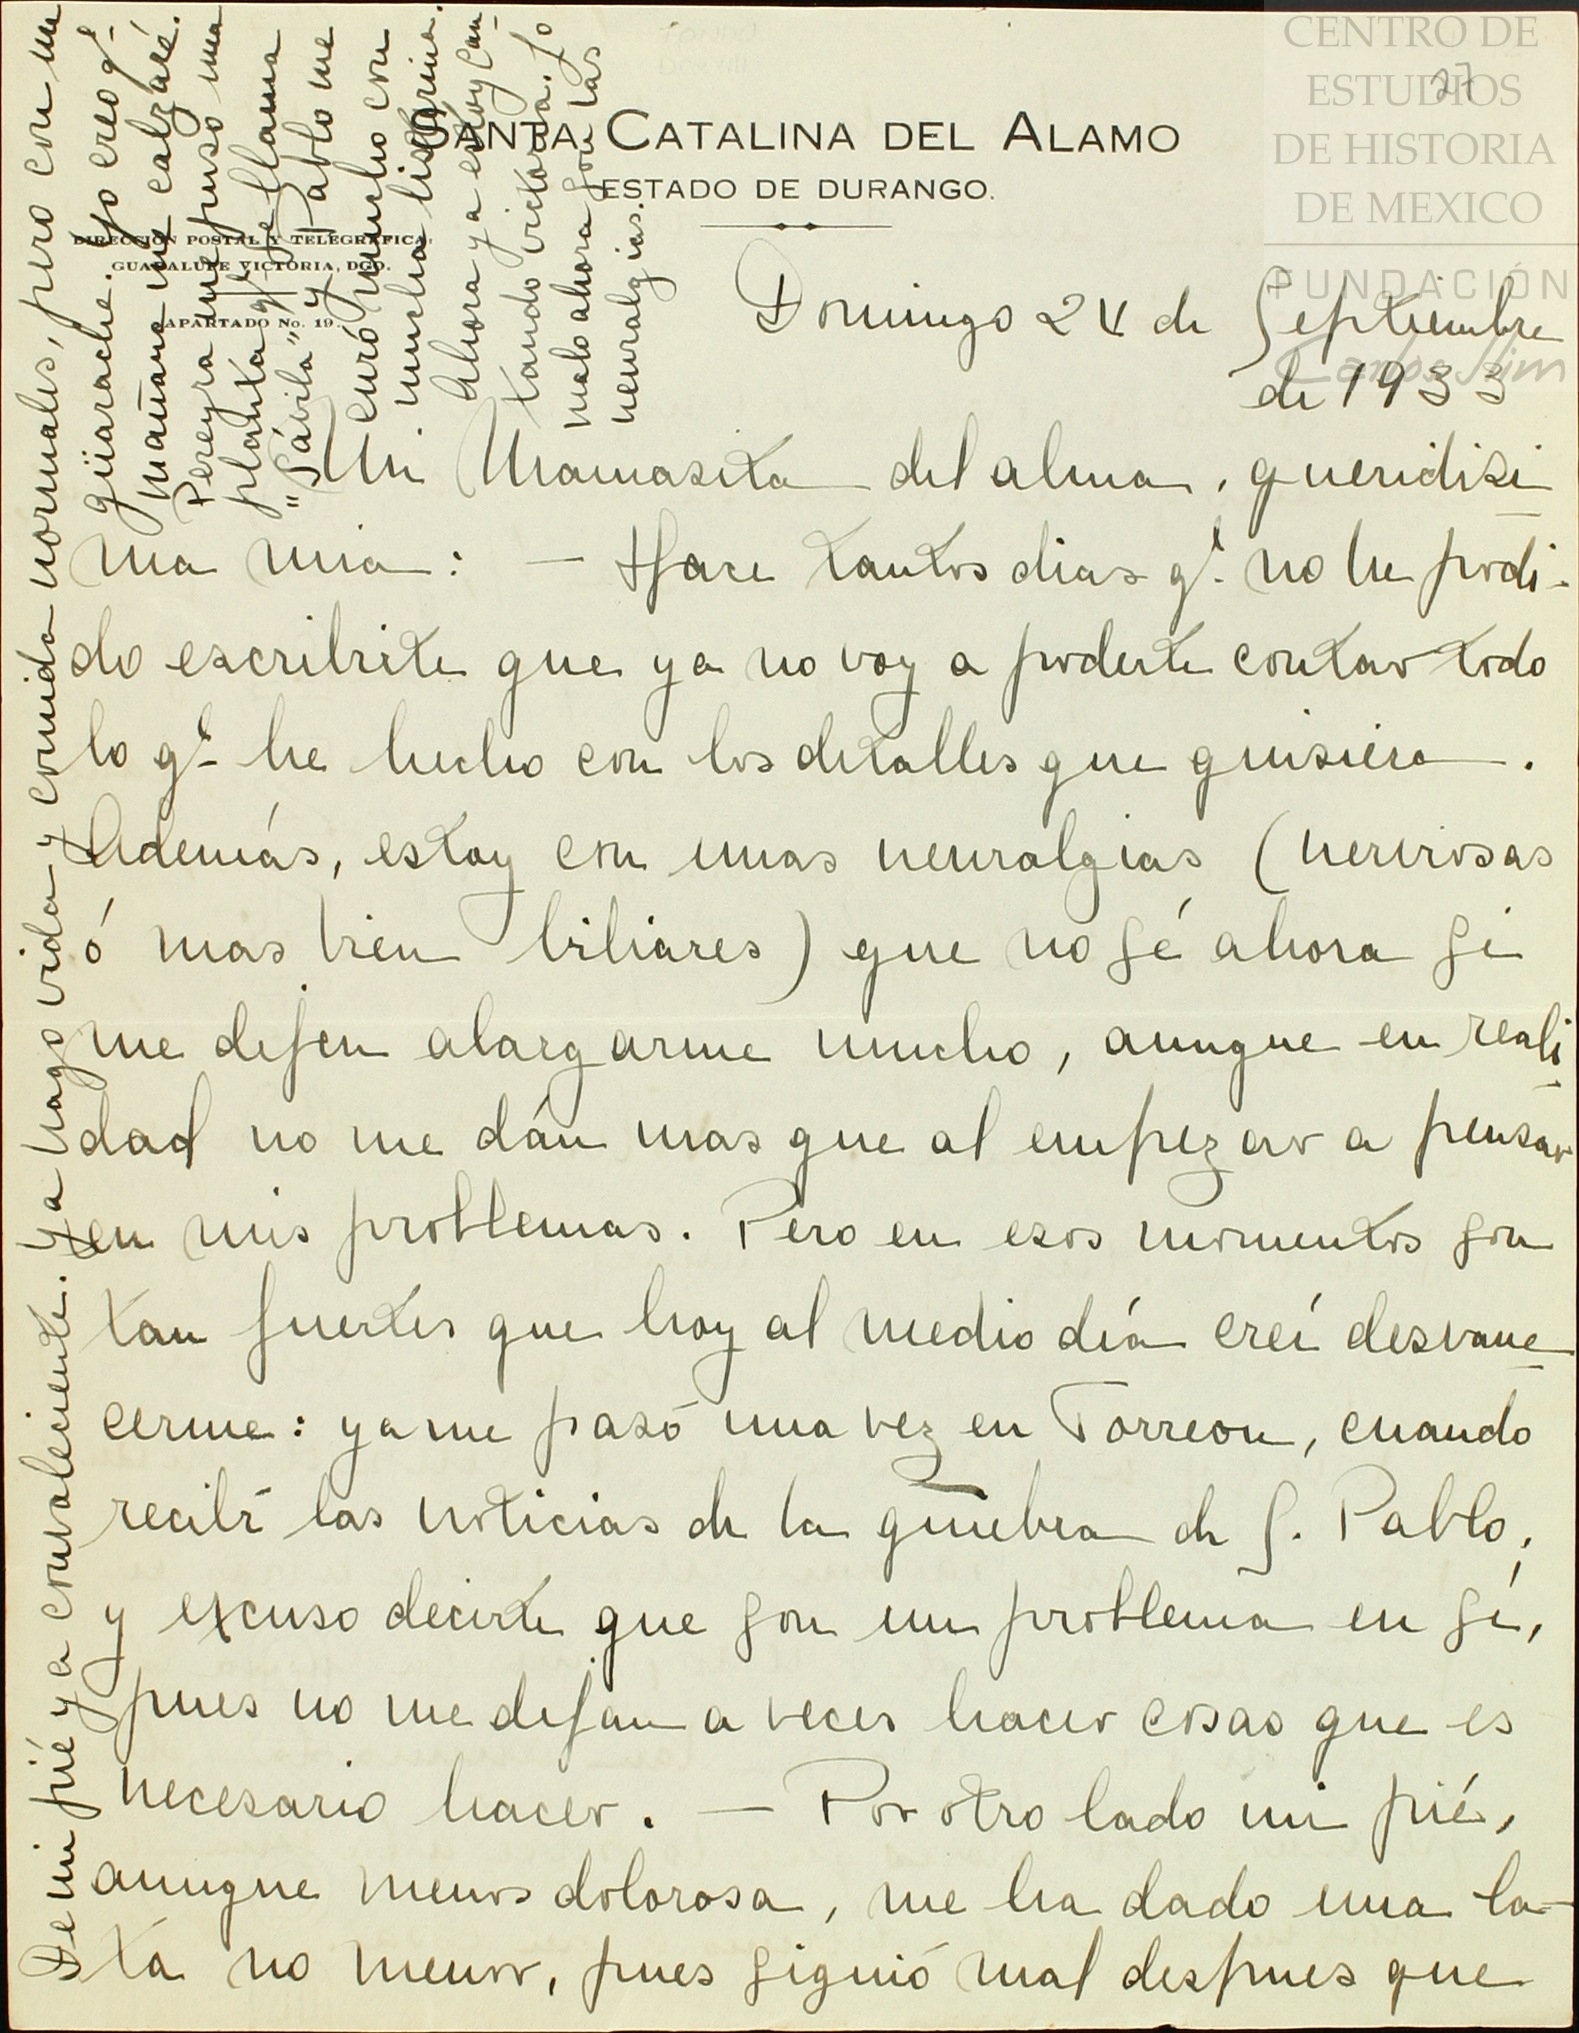 CENTRO DE
ESTUDIOS
DE HISTORIA
DE MEXICO
FUNDACIÓN
Carlos Slim
27
SANTA CATALINA DEL ALAMO
ESTADO DE DURANGO.
DIRECCIÓN POSTAL Y TELEGRAFICA:
GUADALUPE VICTORIA, DGO.
APARTADO No. 19.
Domingo 24 de Septiembre
de 1933
Mi Mamasita del alma, queridisi
ma mia: — Hace tantos dias qe. no he podi-
do escribirte que ya no voy a poderte contar todo
lo qe he hecho con los detalles que quisiera.
Además, estoy con unas neuralgias (nerviosas
ó mas bien biliares) que no sé ahora si
me dejen alargarme mucho, aunque en reali
dad no me dán mas que al empezar a pensar
en mis problemas. Pero en esos momentos son
tan fuertes que hoy al medio día creí desvane
cerme: ya me pasó una vez en Torreon, cuando
recibí las noticias de la quiebra de S. Pablo,
y excuso decirte que son un problema en sí,
pues no me dejan a veces hacer cosas que es
necesario hacer. — Por otro lado mi pié,
aunque menos dolorosa, me ha dado una la-
ta no menor, pues siguió mal despues que
De mi pié ya convaleciente. Ya hago vida y comida normales, pero con un
güarache. Yo creo qe.
mañana me calzaré.
Pereyra me puso una
planta qe se llama
"Sávila" y Pablo me
curó mucho con
mucha listerina.
Ahora ya estoy can-
tando victoria. Lo
malo ahora son las
neuralgias.